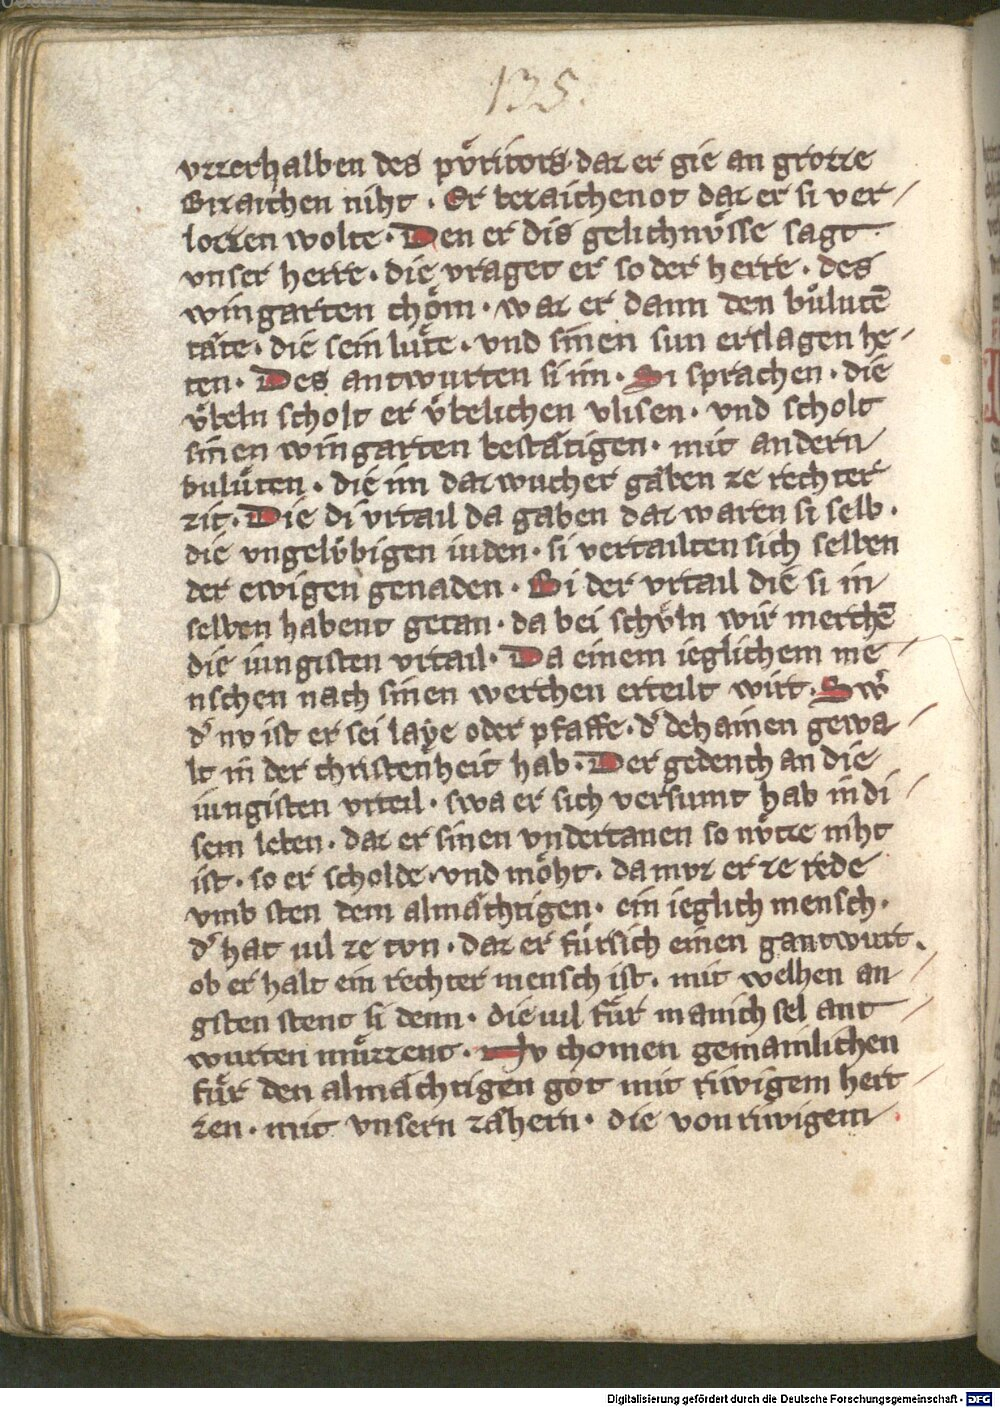 135.
vzzerhalben des pv̊ritors· daz er gie an grozze
Biraichen niht · Er bezaichenot daz er si ver⸗
lozzen wolte · Den er dis gelichnv̊sse sagt ·
vnser herre · die vraget er so der herre · des
wingarten chôm · waz er dann den bůlutē
tåte · die sein lůte · vnd sinen sun erslagen he⸗
ten · Des antwurten si im · Si sprachen · die
v̊beln scholt er v̊belichen vlisen · vnd scholt
sinen wingarten beståtigen · mit andern
bulůten · die im daz wucher gåben ze rechter
zit · Die di vrtail da gaben daz waren si selb ·
die vngelv̊bigen iuden · si vertailten sich selben
der ewigen genaden · Bi der vrtail die si in
selben habent getan · da bei schv̊ln wir merchē
die iungisten vrtail · Da einem ieglichem me⸗
nschen nach sinen werchen erteilt wirt · Sw̓
d̓ nv ist er sei laÿe oder pfaffe · d̓ dehainen gewa⸗
lt in der christenheit hab · Der gedench an die
iungisten vrteil · swa er sich versumt hab in di⸗
sem leben · daz er sinen vndertanen so nv̊zze niht
ist · so er scholde · vnd mo̊ht · da mvz er ze rede
vmb sten dem almåchtigen · ein ieglich mensch ·
d̓ hat uil ze tvn · daz er fůrsich einen gantwurt ·
ob er halt ein rechter mensch ist · mit welhen an⸗
gsten stent si denn · die uil fůr manich sel ant⸗
wurten můzzent · Nv chomen gemainlichen
fůr den almåchtigen got mit riwigem hert⸗
zen · mit vnsern zåhern · die von riwigem
Digitalisierung gefördert durch die Deutsche Forschungsgemeinschaft · DFG